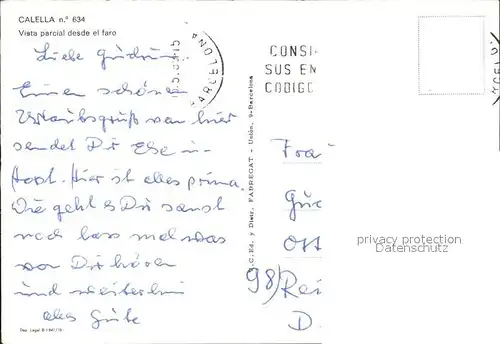 CALELLA n.° 634
Vista parcial desde el faro
Liebe Gudrun.
Einen schönen
Urlaubsgruß von hier
sendet Dir Else u.
Horst. Hier ist alles prima.
Wie geht es Dir sonst
noch lass mal was
von Dir hören
und weiterhin
alles Gute
Dep. Legal B-1.947/19
BARCELONA
CONSI
SUS EN
CODIGO
S.C. Ed. y Distr. FABREGAT - Unión, 9-Barcelona
Frau
Gud
Ost
98/Rei
D.
privacy protection
Datenschutz